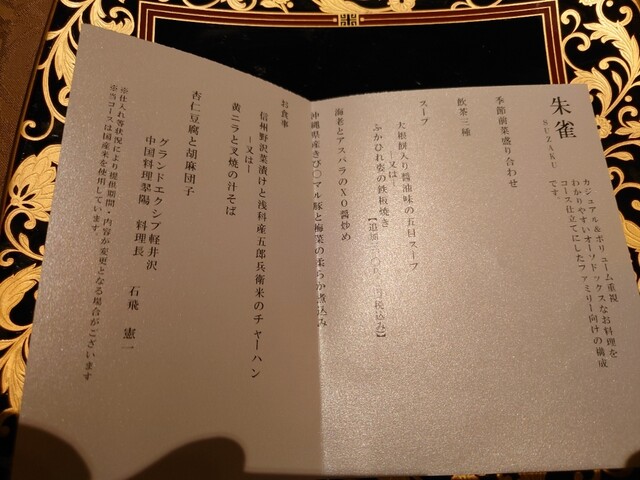 朱雀
SUZAKU
カジュアル&ボリューム重視
わかりやすいオーソドックスなお料理を
コース仕立てにしたファミリー向けの構成
です。
季節前菜盛り合わせ
飲茶三種
スープ
大根餅入り醤油味の五目スープ
―又は―
ふかひれ姿の鉄板焼き
税込み】
海老とアスパラのXO醤炒め
沖縄県産きび〇マル豚と梅菜の柔らか煮込み
お食事
信州野沢菜漬けと浅科産五郎兵衛米のチャーハン
―又は―
黄ニラと叉焼の汁そば
杏仁豆腐と胡麻団子
グランドエクシブ軽井沢
中国料理翠陽 料理長 石飛 憲一
※仕入れ等状況により提供期間・内容が変更となる場合がございます
※当コースは国産米を使用しています。